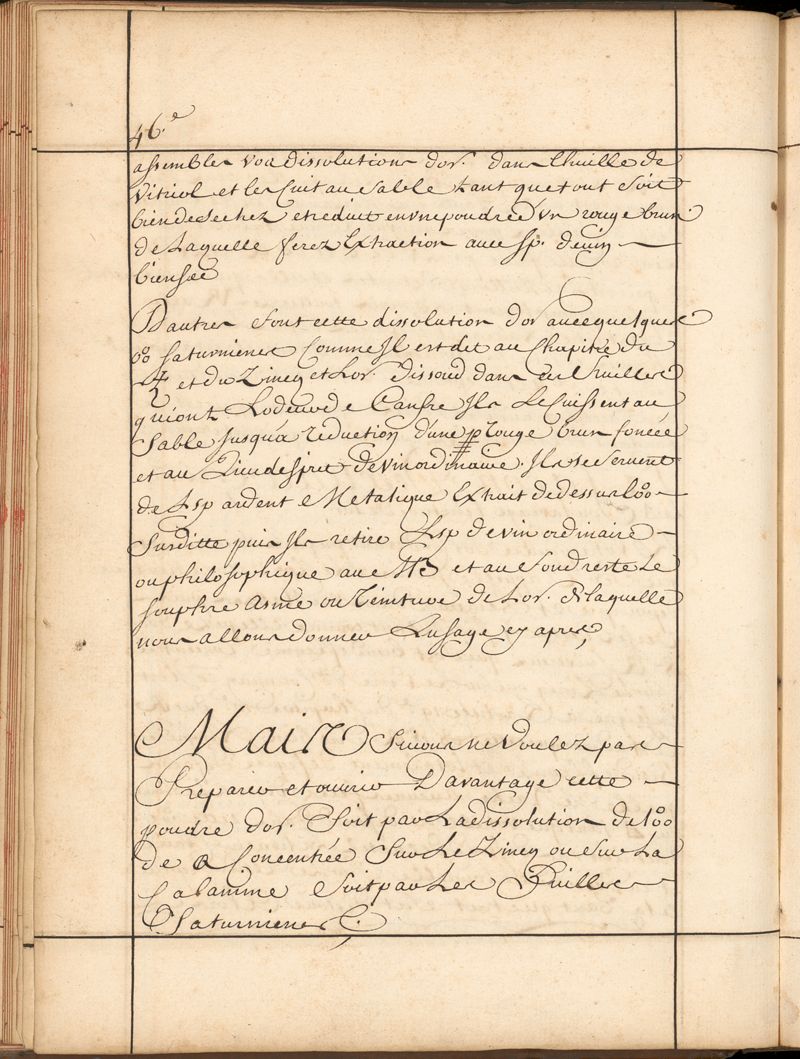 46.e
assembler vos dissolutions d'or. dans l'huille de
Vitriol et les Cuit au Sable tant que tout soit
bien desechez et reduit en vne poudre d'vn rouge brun
de Laquelle ferez Extraction avec sp. de vin
bien seé
D'autres font cette dissolution d'or avec quelques
Saturnienes Comme Il est dit au Chapitre du
♃ et du Zincq et Lor. dissoud dans ces Huilles
qui ont Lodeur de Canfre Ils Le Cuissent au
Sable Jusqu'a reduction d'une rouge brun foncée
et au Lieu desprit de vin ordinaire. Ils se servent
de Lsp ardent Metalique Extrait de dessus
Susditte puis Ils retire Lsp de vin ordinaire
ou philosophique au et au fond reste Le
souphre asme ou Teinture de Lor. de laquelle
nous allons donner Lusage cy apres,
Mais Si vous ne voulez pas
Preparer et ouvrir Davantage cette
poudre d'or. Soit par La dissolution de
de Concentrée Sur Le Zincq ou sur La
Calamine Soit par Les Huilles
Saturnienes